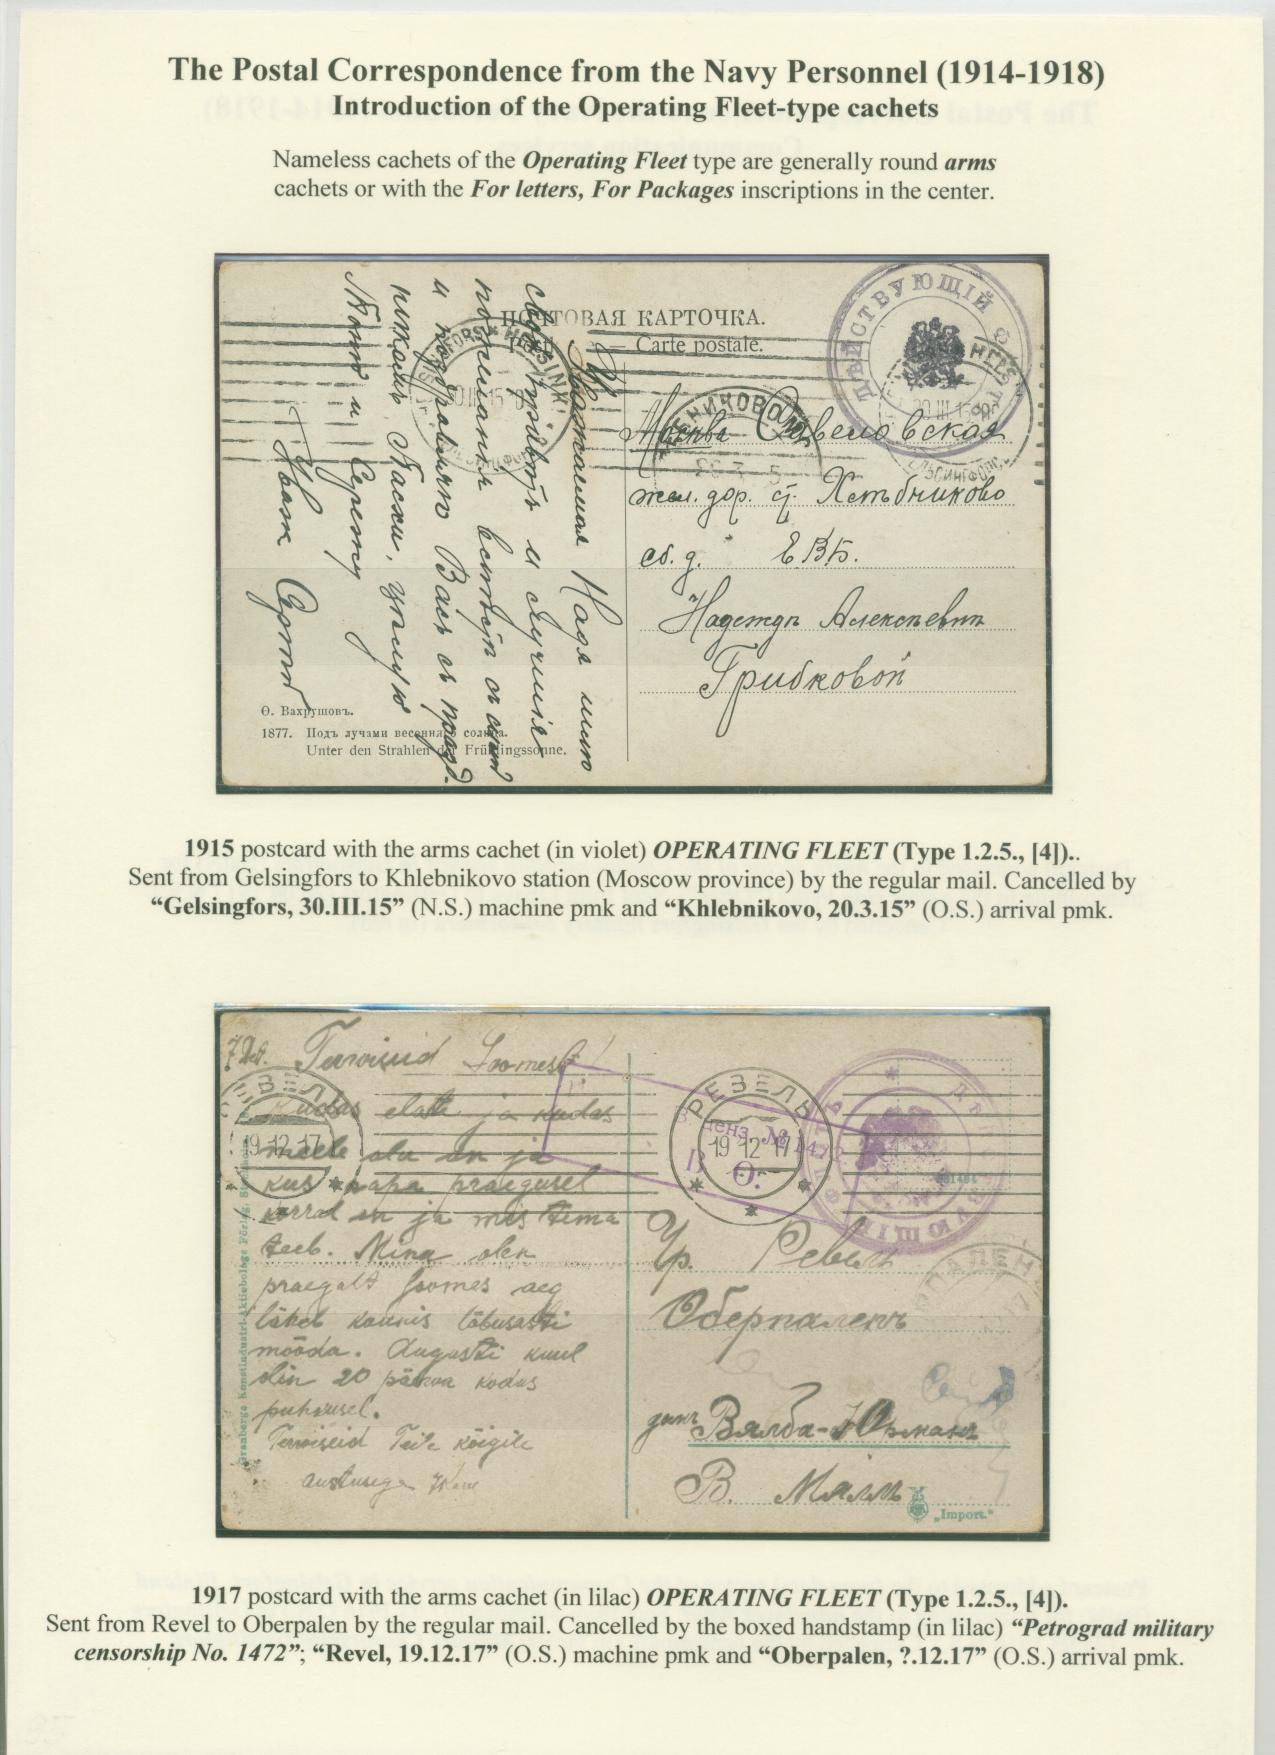 The Postal Correspondence from the Navy Personnel (1914-1918)
Introduction of the Operating Fleet-type cachets
Nameless cachets of the Operating Fleet type are generally round arms
cachets or with the For letters, For Packages inscriptions in the center.
ПОЧТОВАЯ КАРТОЧКА.
— Carte postale.
ДѢЙСТВУЮЩІЙ
Уважаемая Надя шлю
свой привѣтъ и лучшія
и поздравляю Васъ съ празд.
Пасхи. цѣлую
и Сережу
Иванъ
Москва Савеловская
жел. дор. ст. Хлѣбниково
св. д. Е.В.Б.
Надеждѣ Алексѣевнѣ
Грибковой
Ѳ. Вахрушовъ.
1877. Подъ лучами весенняго солнца.
Unter den Strahlen der Frühlingssonne.
1915 postcard with the arms cachet (in violet) OPERATING FLEET (Type 1.2.5., [4])..
Sent from Gelsingfors to Khlebnikovo station (Moscow province) by the regular mail. Cancelled by
“Gelsingfors, 30.III.15” (N.S.) machine pmk and “Khlebnikovo, 20.3.15” (O.S.) arrival pmk.
Terviseid Soomest!
Kudas elate ja kudas
meele olu on ja
kus papa praegusel
korral on ja mis tema
teeb. Mina olen
praegalt Soomes aeg
läheb kaunis lõbusasti
mööda. Augusti kuul
olin 20 päeva kodus
puhkusel.
Terviseid Teile kõigile
austusega
РЕВЕЛЬ
19 12 17
РЕВЕЛЬ
19 12 17
Ценз. № 1472
В. О.
Гр. Ревель
Оберпаленъ
Вялба-Юрканъ
В. Мялмъ
Granbergs Konstindustri-Aktiebolags Förlag, Stockholm
„Import.“
1917 postcard with the arms cachet (in lilac) OPERATING FLEET (Type 1.2.5., [4]).
Sent from Revel to Oberpalen by the regular mail. Cancelled by the boxed handstamp (in lilac) “Petrograd military
censorship No. 1472”; “Revel, 19.12.17” (O.S.) machine pmk and “Oberpalen, ?.12.17” (O.S.) arrival pmk.